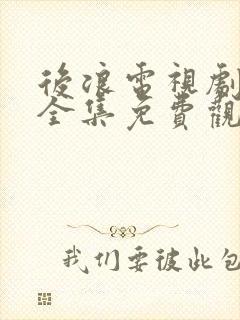 後浪電視劇
全集免費觀
我们要彼此包